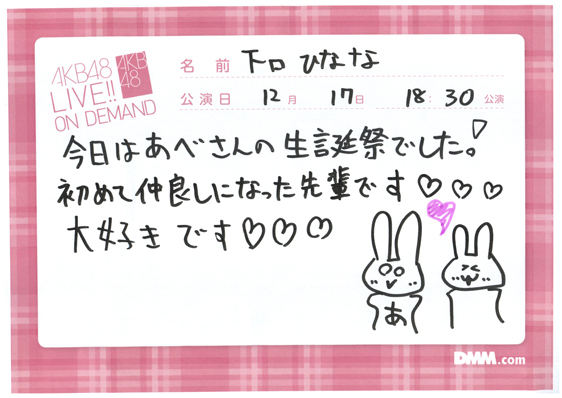 AKB48
LIVE!!
ON DEMAND
AKB
48
名前 下口ひなな
公演日 12月 17日 18:30公演
今日はあべさんの生誕祭でした。
初めて仲良しになった先輩です♡♡♡
大好きです♡♡♡
あ
DMM.com